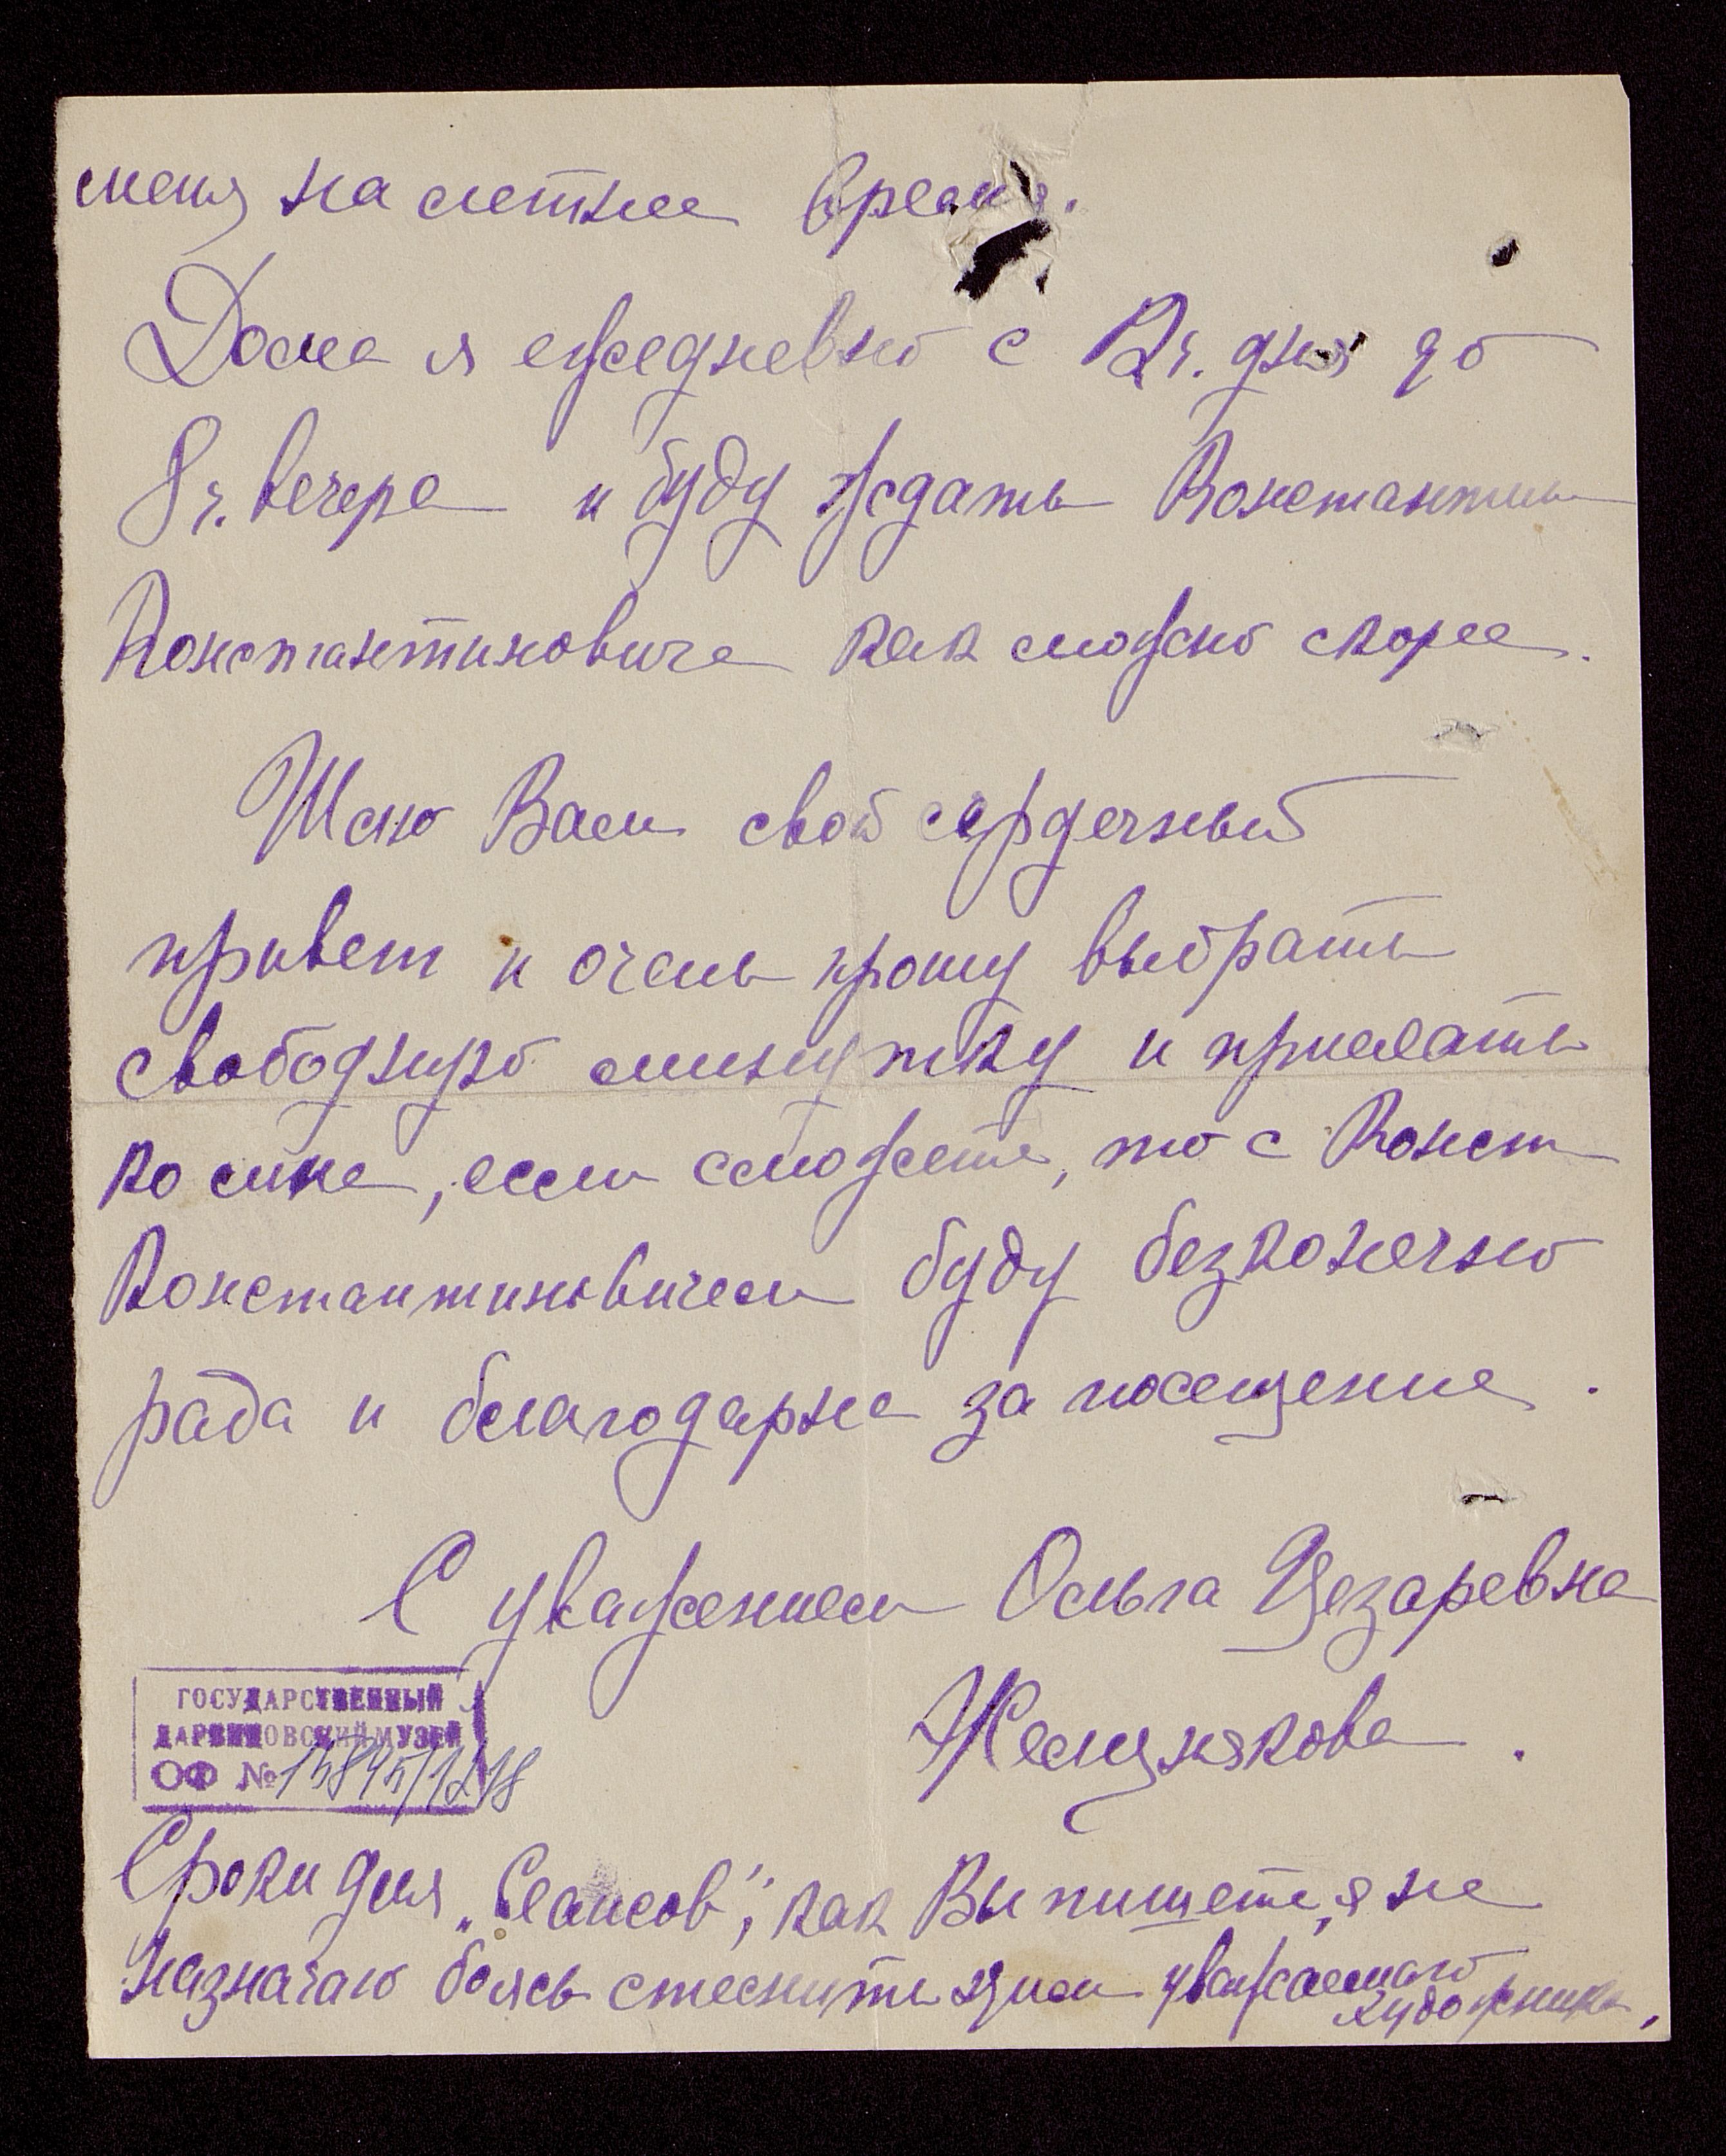 меня на летнее время.
Дома я ежедневно с 12 ч. дня до
8 ч. вечера и буду ждать Константин
Константиновича как можно скорее.
Шлю Вам свой сердечный
привет и очень прошу выбрать
свободную минутку и приехать
ко мне, если сможете, то с Конст
Константиновичем буду безконечно
рада и благодарна за посещение.
С уважением Ольга Цезаревна
Жемчужникова.
ГОСУДАРСТВЕННЫЙ
ДАРВИНОВСКИЙ МУЗЕЙ
ОФ №
Сроки для „Сеансов", как Вы пишете, я не
назначаю боясь стеснить этим уважаемого
художника.